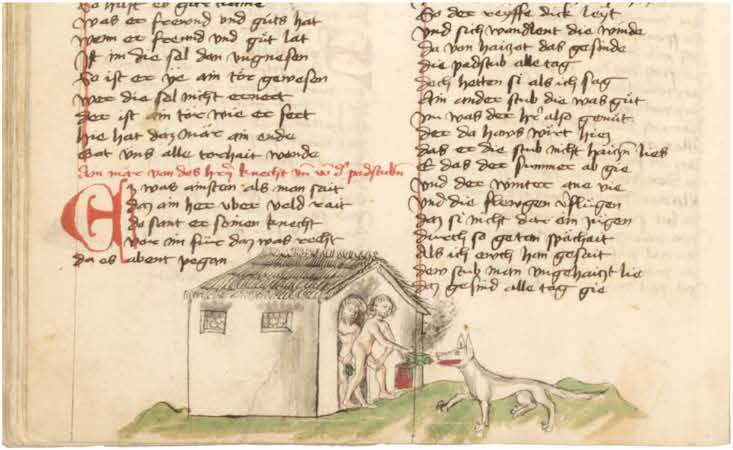 Was er frewnd vnd guts hat
wenn er freund vnd gut lat
Ist im die sel dan vngnesen
So ist er ye ain tor gewesen
wer die sel nicht ernert
der ist ain tor wie er fert
hie hat daz mär ain ende
Got vns alle torhait wende
Ain mär von des hrn knecht vnd padstubn
Ez was ainsten als man sait
daz ain her vber veld rait
do sant er seinen knecht
vor im für daz was recht
da es abent pegan
So der reyffe dick leyt
vnd sich wandlent die winde
da von haizet das gesinde
die padstub alle tag
doch hetten si als ich sag
Ain ander stub die was gut
nu was der hr also gemut
der da haws wirt hiez
das er die stub nicht haiczn lies
E das der summer ab gie
vnd der winter ane vie
vnd die flewgen
daz si nicht dar ein zugen
durch so getan spächait
als ich ewch han gesait
dew stub man vngehaizt lie
daz gesind alle tag gie